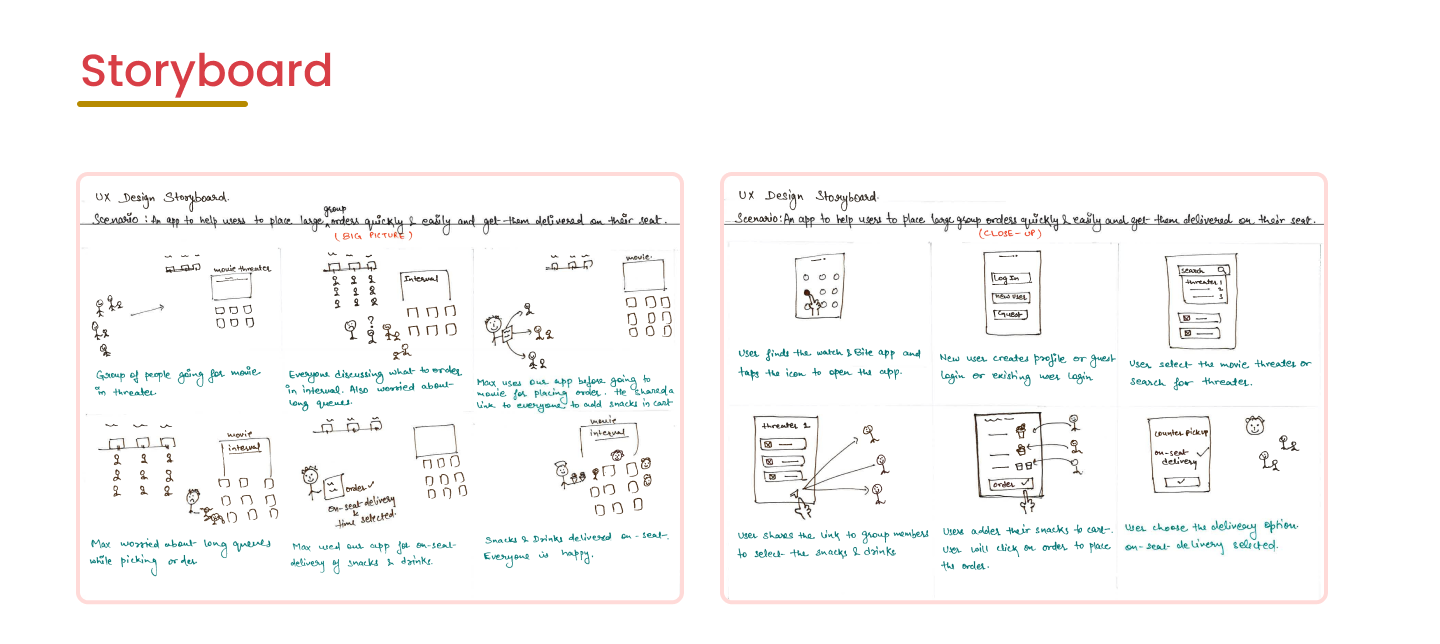 Storyboard
UX Design Storyboard.
group
Scenario : An app to help users to place large orders quickly & easily and get them delivered on their seat.
(BIG PICTURE)
movie threater
Group of people going for movie
in threater.
Interval
?
Everyone discussing what to order
in interval. Also worried about
long queues.
movie.
Max uses our app before going to
movie for placing order. He shared a
link to everyone to add snacks in cart
movie
interval
Max worried about long queues
while picking order
order ✓
on-seat delivery
&
time selected.
Max used our app for on-seat
delivery of snacks & drinks.
movie
interval
Snacks & Drinks delivered on-seat.
Everyone is happy.
UX Design Storyboard.
Scenario: An app to help users to place large group orders quickly & easily and get them delivered on their seat.
(CLOSE-UP)
User finds the watch & Bite app and
taps the icon to open the app.
Log In
New User
Guest
New user creates profile or guest
login or existing user login
Search
threater 1
2
3
User select the movie threater or
search for threater.
threater 1
User shares the link to group members
to select the snacks & drinks
order ✓
Users adder their snacks to cart.
User will click on order to place
the order.
counter pickup
on-seat
delivery ✓
✓
User choose the delivery option.
on-seat delivery selected.